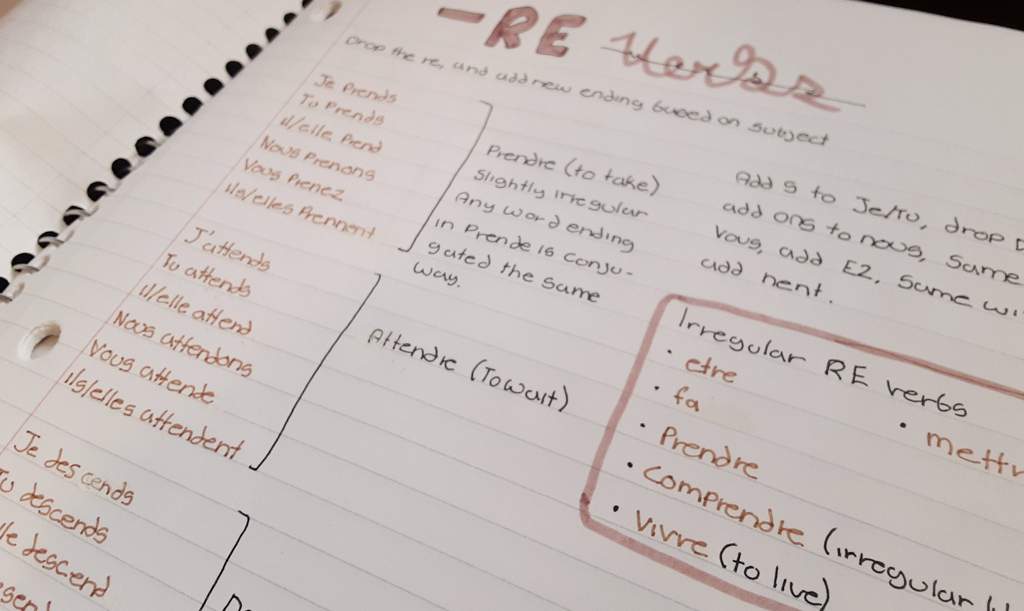 -RE Verbs
Drop the re, and add new ending based on subject
Je Prends
Tu Prends
il/elle Prend
Nous Prenons
Vous Prenez
ils/elles Prennent
Prendre (to take)
Slightly irregular
Any word ending
in Prende is conju-
gated the same
way.
Add s to Je/Tu, drop
add ons to nous, same
Vous, add EZ, same wi
add nent.
J'attends
Tu attends
il/elle attend
Nous attendons
Vous attende
ils/elles attendent
Attendre (To wait)
Irregular RE verbs
• etre
• fa
• mettr
• Prendre
• Comprendre (irregular
• Vivre (to live)
Je descends
Tu descends
lle descend